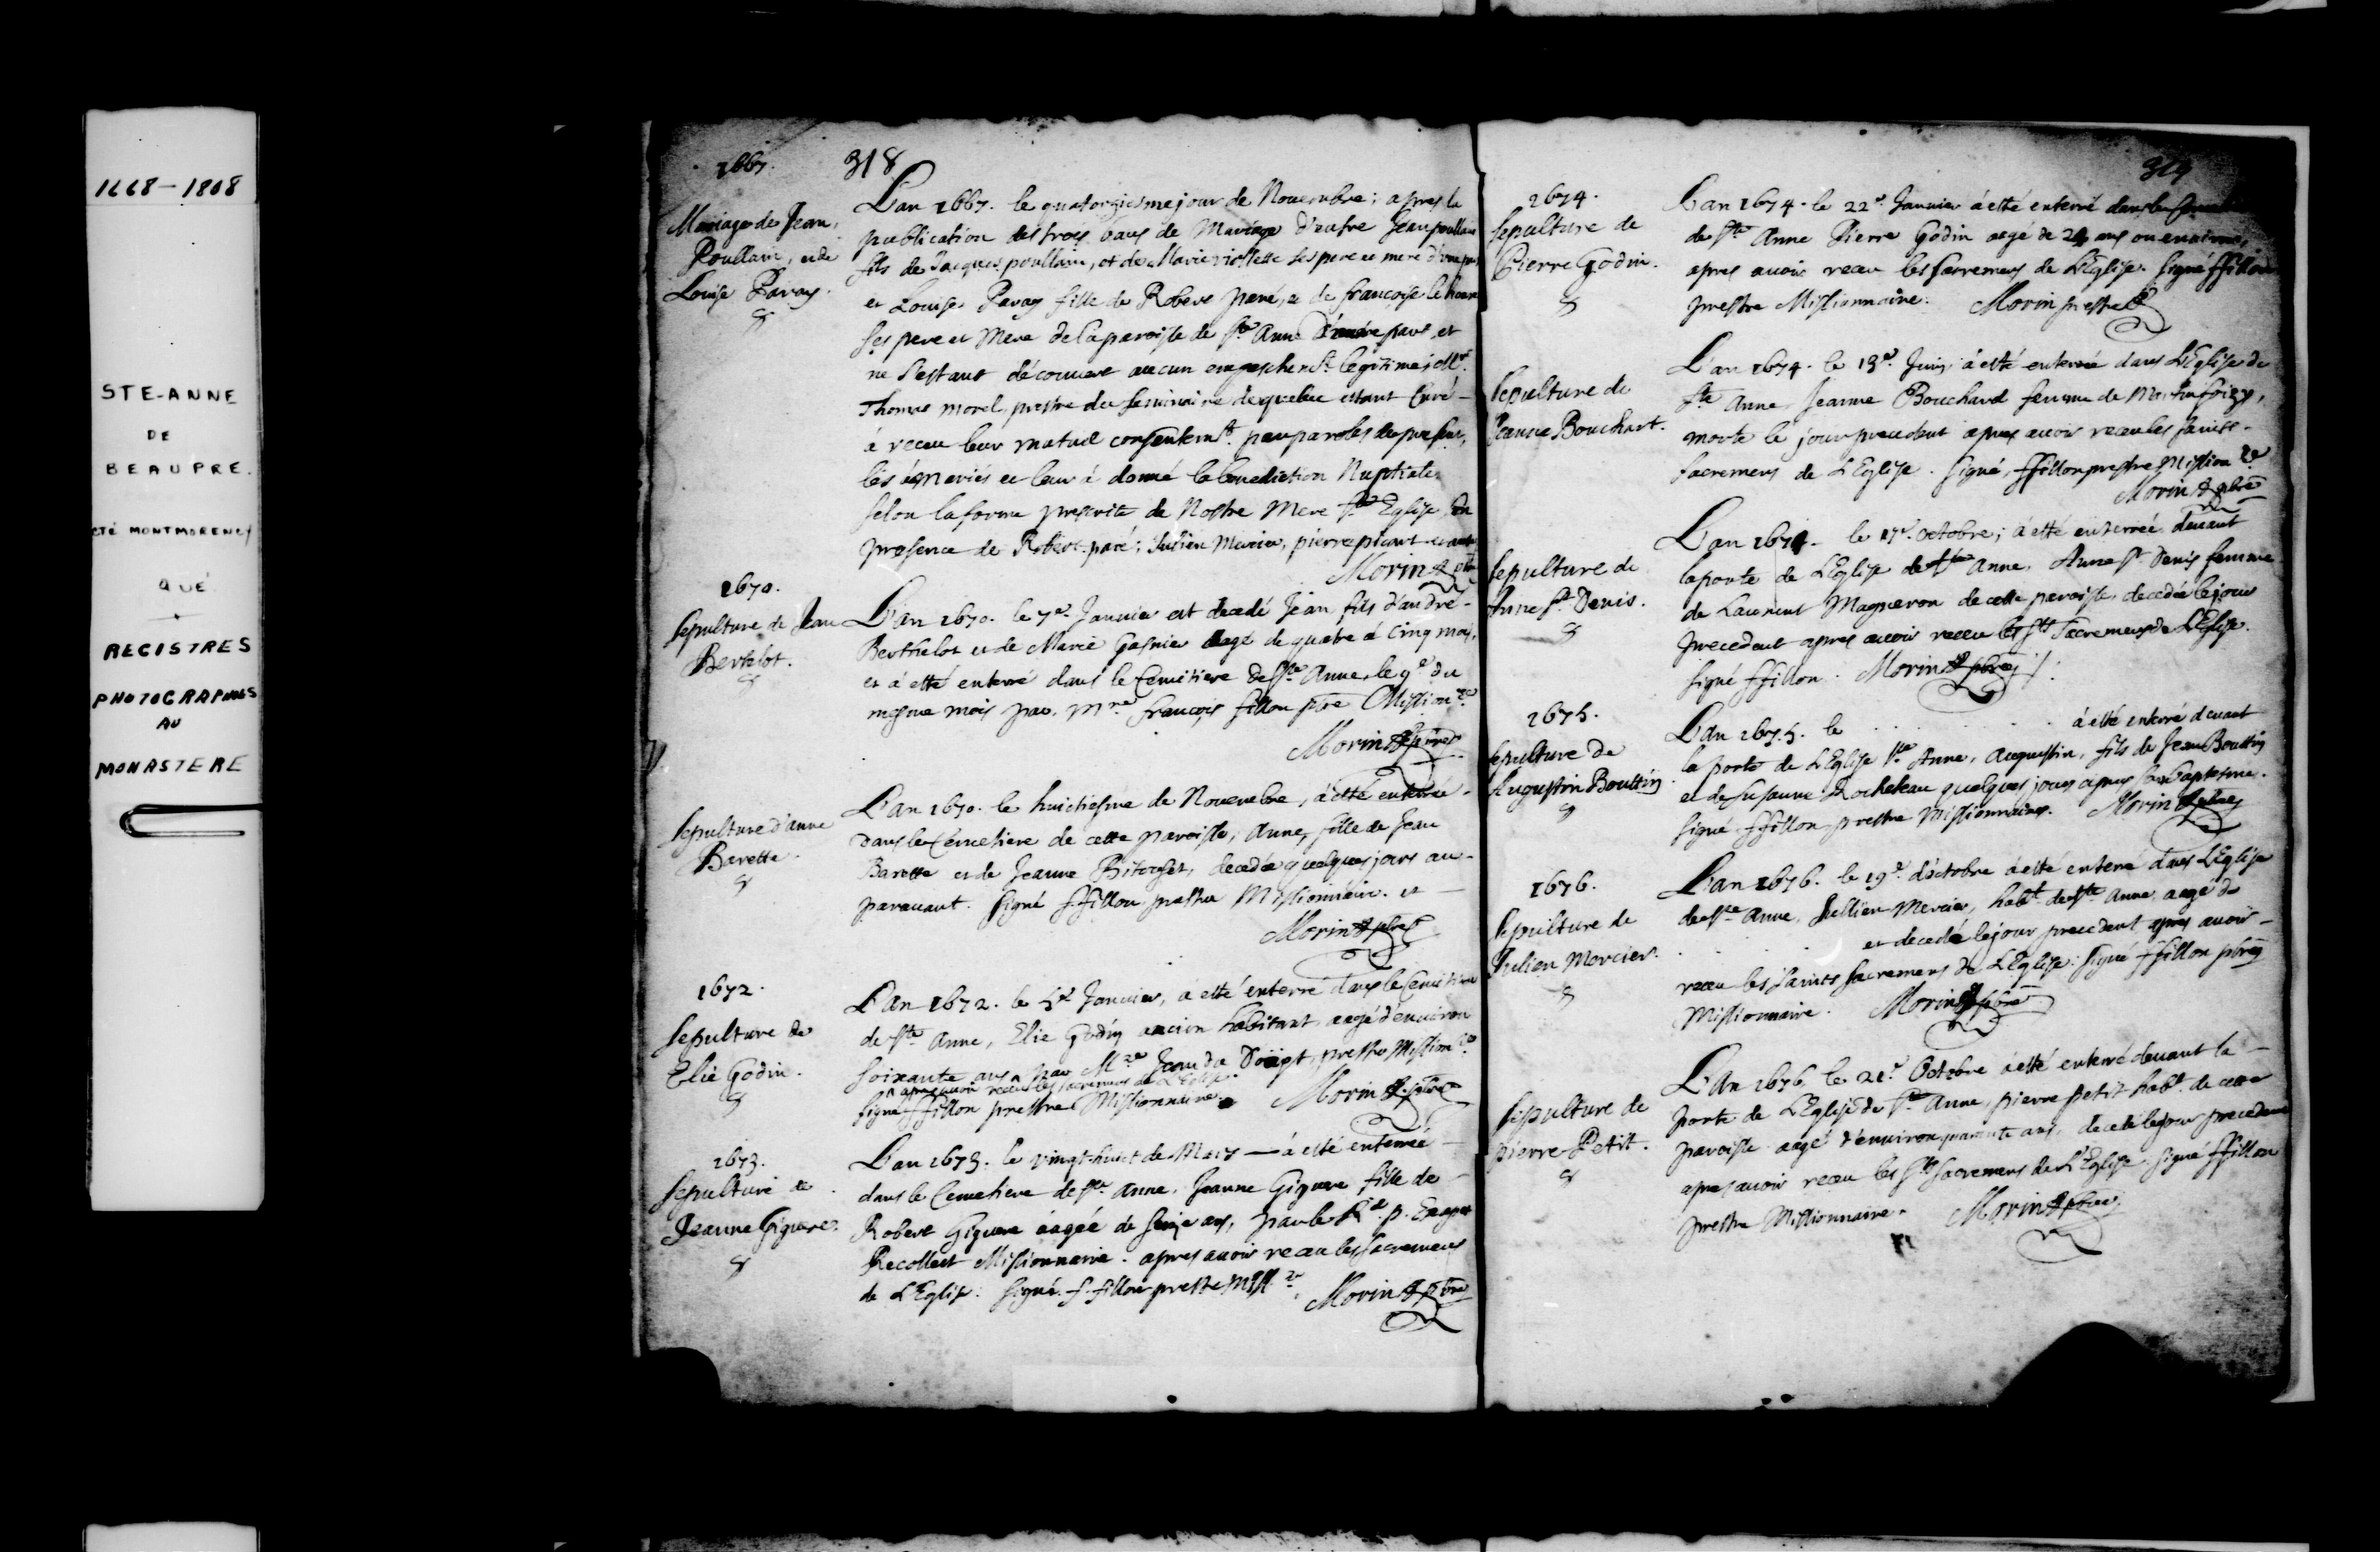 1668-1808
STE-ANNE
DE
BEAUPRE.
CTÉ MONTMORENCY
QUÉ
REGISTRES
PHOTOGRAPHIÉS
AU
MONASTERE
1667.
318
Mariage de Jean
Poullain, et de
Louise Paray.
L'an 1667. le quatorziesme jour de Novembre; apres la
publication des trois bans de Mariage d'entre Jean poullain
fils de Jacques poullain, et de Marie violette ses pere et mere d'une part
et Louise Paray fille de Robert paré, et de francoise le houx
ses pere et Mere de la paroisse de Ste Anne d'autre part, et
ne s'estant découvert aucun empeschemt. legitime, Mre.
Thomas morel, prestre du seminaire de quebec estant Curé
à receu leur mutuel consentemt. par paroles de present,
les à mariés et leur à donné la benediction Nuptiale
selon la forme prescrite de Nostre Mere Ste Eglise En
presence de Robert paré; Julien Mercier, pierre picart
Morin
1670.
Sepulture de Jean
Bertelot.
L'an 1670. le 7e. Janvier est decedé Jean fils d'andre
Berthelot et de Marie Gasnier aagé de quatre à cinq mois,
et à esté enterré dans le Cemitiere de Ste Anne, le 9e du
mesme mois par. Mre francois fillon ptre Missionre.
Morin pbre
Sepulture d'anne
Barette.
L'an 1670. le huictiesme de Novembre, à esté enterrée
dans le Cemetiere de cette paroisse, Anne, fille de Jean
Barette et de Jeanne Bitouset, decedée quelques jours au-
paravant. signé ffillon prestre Missionnaire. et
Morin pbre
1672.
Sepulture de
Elie Godin.
L'An 1672. le 5e Janvier, à esté enterré dans le Cemitiere
de Ste Anne, Elie Godin ancien habitant aagé d'environ
soixante ans par Mre Jean du Doüyt, prestre Missionre.
apres avoir receu les sacremens de L'Eglise.
signé ffillon prestre Missionnaire. Morin pbre
1673.
Sepulture de
Jeanne Giguere.
L'an 1673. le vingt-huict de Mars — à esté enterrée
dans le Cemetiere de Ste Anne, Jeanne Giguere fille de
Robert Giguere aagée de seize ans, par le Rd. p. Exuper
Recollect Missionnaire. apres avoir receu les sacremens
de L'Eglise: signé. f. fillon prestre Miss.re Morin pbre
319
1674.
Sepulture de
Pierre Godin.
L'an 1674. le 22e. Janvier à esté enterré dans le
de Ste Anne Pierre Godin aagé de ans ou environ,
apres avoir receu les sacremens de L'Eglise. signé ffillon
prestre Missionnaire. Morin prestre
Sepulture de
Jeanne Bouchart.
L'an 1674. le 13e. Juin, à esté enterrée dans L'Eglise de
Ste Anne, Jeanne Bouchard femme de Martin foizy,
morte le jour precedent apres avoir receu les saincts
sacremens de L'Eglise. signé, ffillon prestre Missionre.
Morin pbre
Sepulture de
Anne St. Denis.
L'an 1674. le 17e. octobre; à esté enterrée devant
la porte de L'Eglise de Ste Anne, Anne St Denis femme
de Laurent Magneron de cette paroisse, decedée le jour
precedent apres avoir receu les Sts Sacremens de L'Eglise.
signé ffillon. Morin pbre
1675.
Sepulture de
Augustin Bouttin
L'An 1675. le . . . . . à esté enterré devant
la porte de L'Eglise Ste Anne, Augustin, fils de Jean Bouttin
et de Susanne Rocheteau quelques jours apres son baptesme.
signé ffillon, prestre Missionnaire. Morin pbre
1676.
Sepulture de
Julien Mercier.
L'an 1676. le 19e. d'octobre à esté enterré dans L'Eglise
de Ste Anne, Jullien Mercier, habt. de Ste Anne, aagé de
. . . et decedé le jour precedent apres avoir
receu les saints sacremens de L'Eglise: signé ffillon pbre
Missionnaire. Morin pbre
Sepulture de
pierre Petit.
L'An 1676 le 21e. Octobre à esté enterré devant la
porte de L'Eglise de Ste Anne, pierre petit habt. de cette
paroisse aagé d'environ quarante ans, decedé le jour precedent
apres avoir receu les Sts Sacremens de L'Eglise. signé ffillon
prestre Missionnaire. Morin pbre